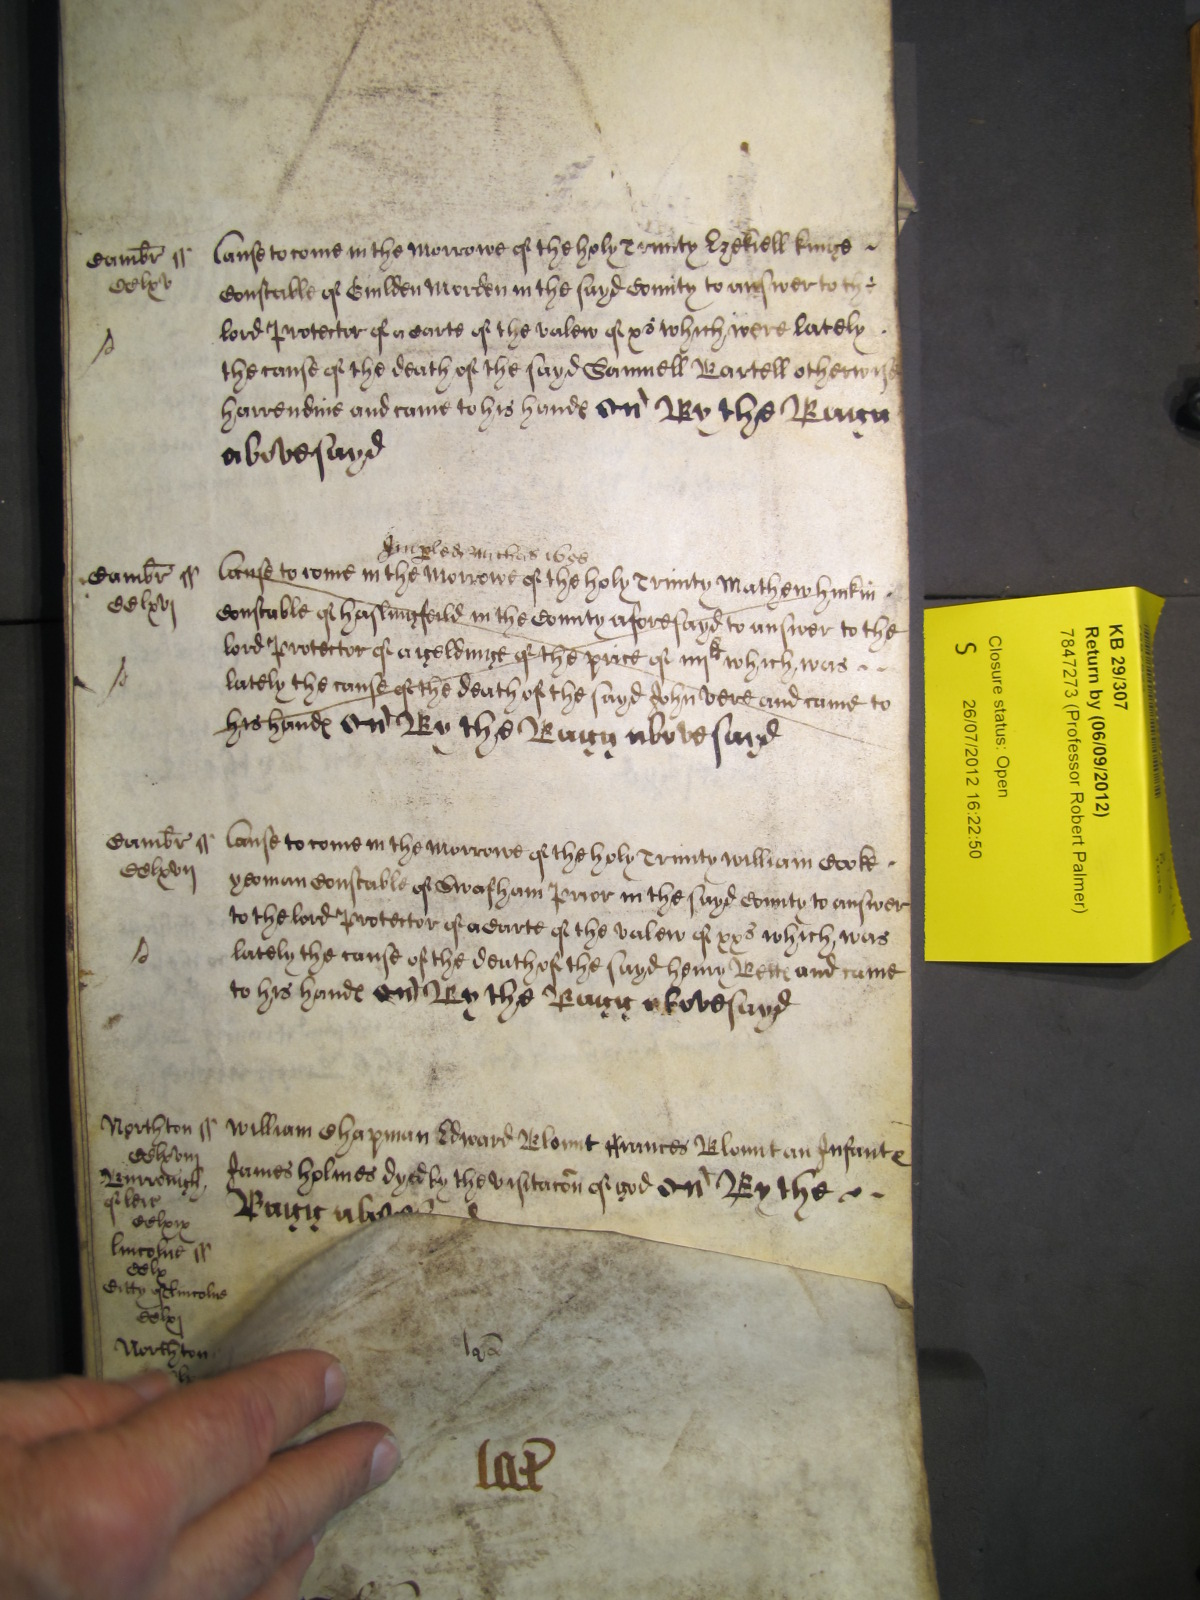 Cambr ss
cclxv
Cause to come in the Morrowe of the holy Trinity Ezekiell Kinge
Constable of Guilden Morden in the sayd County to answer to the
lord Protector of a Carte of the valew of xs which were lately
the cause of the death of the sayd Samuell Bartell otherwise
Harrendine and came to his hands By the Bagg
abovesayd
Cambr ss
cclxvj
Cause to come in the Morrowe of the holy Trinity Mathew Hinkin
Constable of Haslingfeild in the County aforesayd to answer to the
lord Protector of a geldinge of the price of iiijli which was
lately the cause of the death of the sayd John Vere and came to
his hands By the Bagg abovesayd
Cambr ss
cclxvij
Cause to come in the Morrowe of the holy Trinity William Cooke
yeoman Constable of Swafham Prior in the sayd County to answer
to the lord Protector of a Carte of the valew of xxs which was
lately the cause of the death of the sayd Henry and came
to his hands By the Bagg abovesayd
Northton ss
Burrough
of Leic
Lincolne ss
cclx
Citty of Lincolne
cclxj
Northton
William Chapman Edward Blount Frances Blount an Infante
James Holmes dyed by the visitacon of god By the
Bagg
KB 29/307
Return by (06/09/2012)
7847273 (Professor Robert Palmer)
Closure status: Open
S 26/07/2012 16:22:50